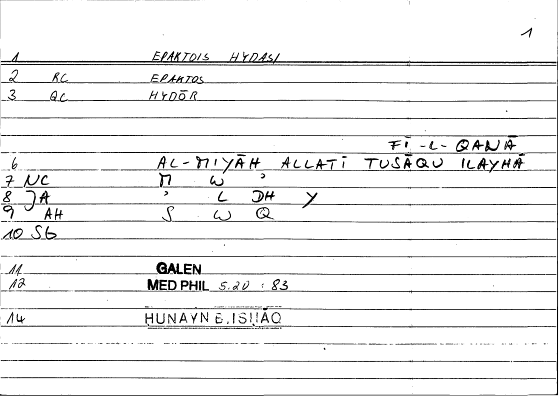 1
1 EPAKTOIS HYDASI
2 RC EPAKTOS
3 QC HYDŌR
FĪ-L-QANĀ
6 AL-MIYĀH ALLATĪ TUSĀQU ILAYHĀ
7 NC M W ʾ
8 JA ʾ L DH Y
9 AH S W Q
10 SG
11 GALEN
12 MED PHIL 5.20 : 83
14 HUNAYN B. ISHAQ